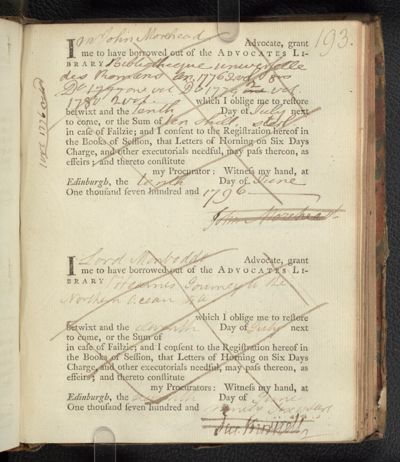 193.
I Mr John Morehead Advocate, grant
me to have borrowed out of the ADVOCATES LI-
BRARY Bibliotheque universelle
des Romans
which I oblige me to restore
betwixt and the tenth Day of July next
to come, or the Sum of
in case of Failzie; and I consent to the Registration hereof in
the Books of Session, that Letters of Horning on Six Days
Charge, and other executorials needful, may pass thereon, as
effeirs; and thereto constitute
my Procurator: Witness my hand, at
Edinburgh, the tenth Day of June
One thousand seven hundred and
1796
John Morehead
I Lord Monboddo Advocate, grant
me to have borrowed out of the ADVOCATES LI-
BRARY Journey to the
Northern Ocean
which I oblige me to restore
betwixt and the eleventh Day of July next
to come, or the Sum of
in case of Failzie; and I consent to the Registration hereof in
the Books of Session, that Letters of Horning on Six Days
Charge, and other executorials needful, may pass thereon, as
effeirs; and thereto constitute
my Procurators: Witness my hand, at
Edinburgh, the Day of June
One thousand seven hundred and ninety six years
Jas Burnett